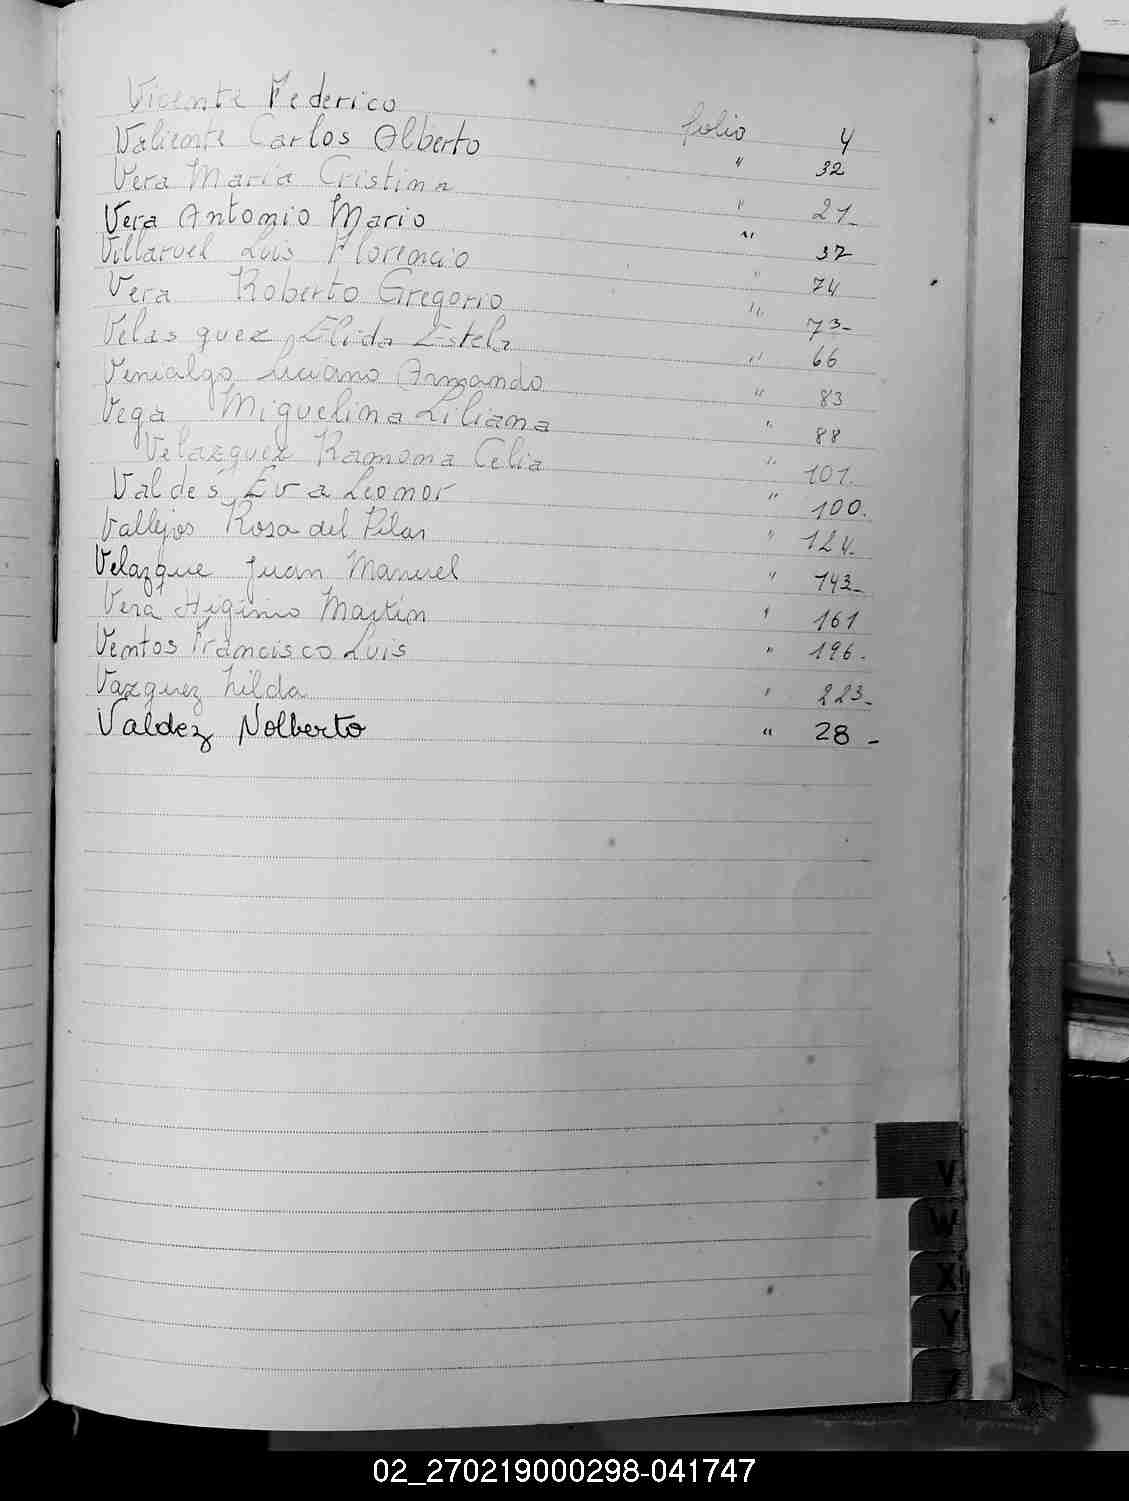 Vicente Federico folio 4
Valiente Carlos Alberto " 32
Vera María Cristina " 21-
Vera Antonio Mario " 37
Villaruel Luis Florencio " 74
Vera Roberto Gregorio " 73-
Velasquez Elida Estela " 66
Venialgo Luciano Armando " 83
Vega Miguelina Liliana " 88
Velazquez Ramona Celia " 101.
Valdés Eva Leonor " 100.
Vallejos Rosa del Pilar " 124.
Velazque Juan Manuel " 143-
Vera Higinio Martín " 161
Ventos Francisco Luis " 196.
Vazquez hilda " 223-
Valdez Nolberto " 28-
V
W
X
Y
02_270219000298-041747